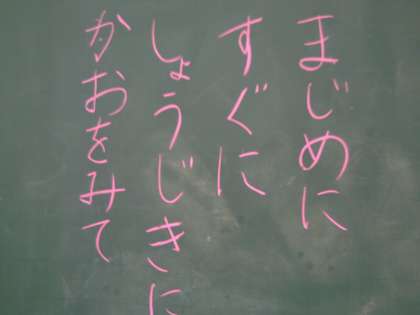 まじめに
すぐに
しょうじきに
かおをみて